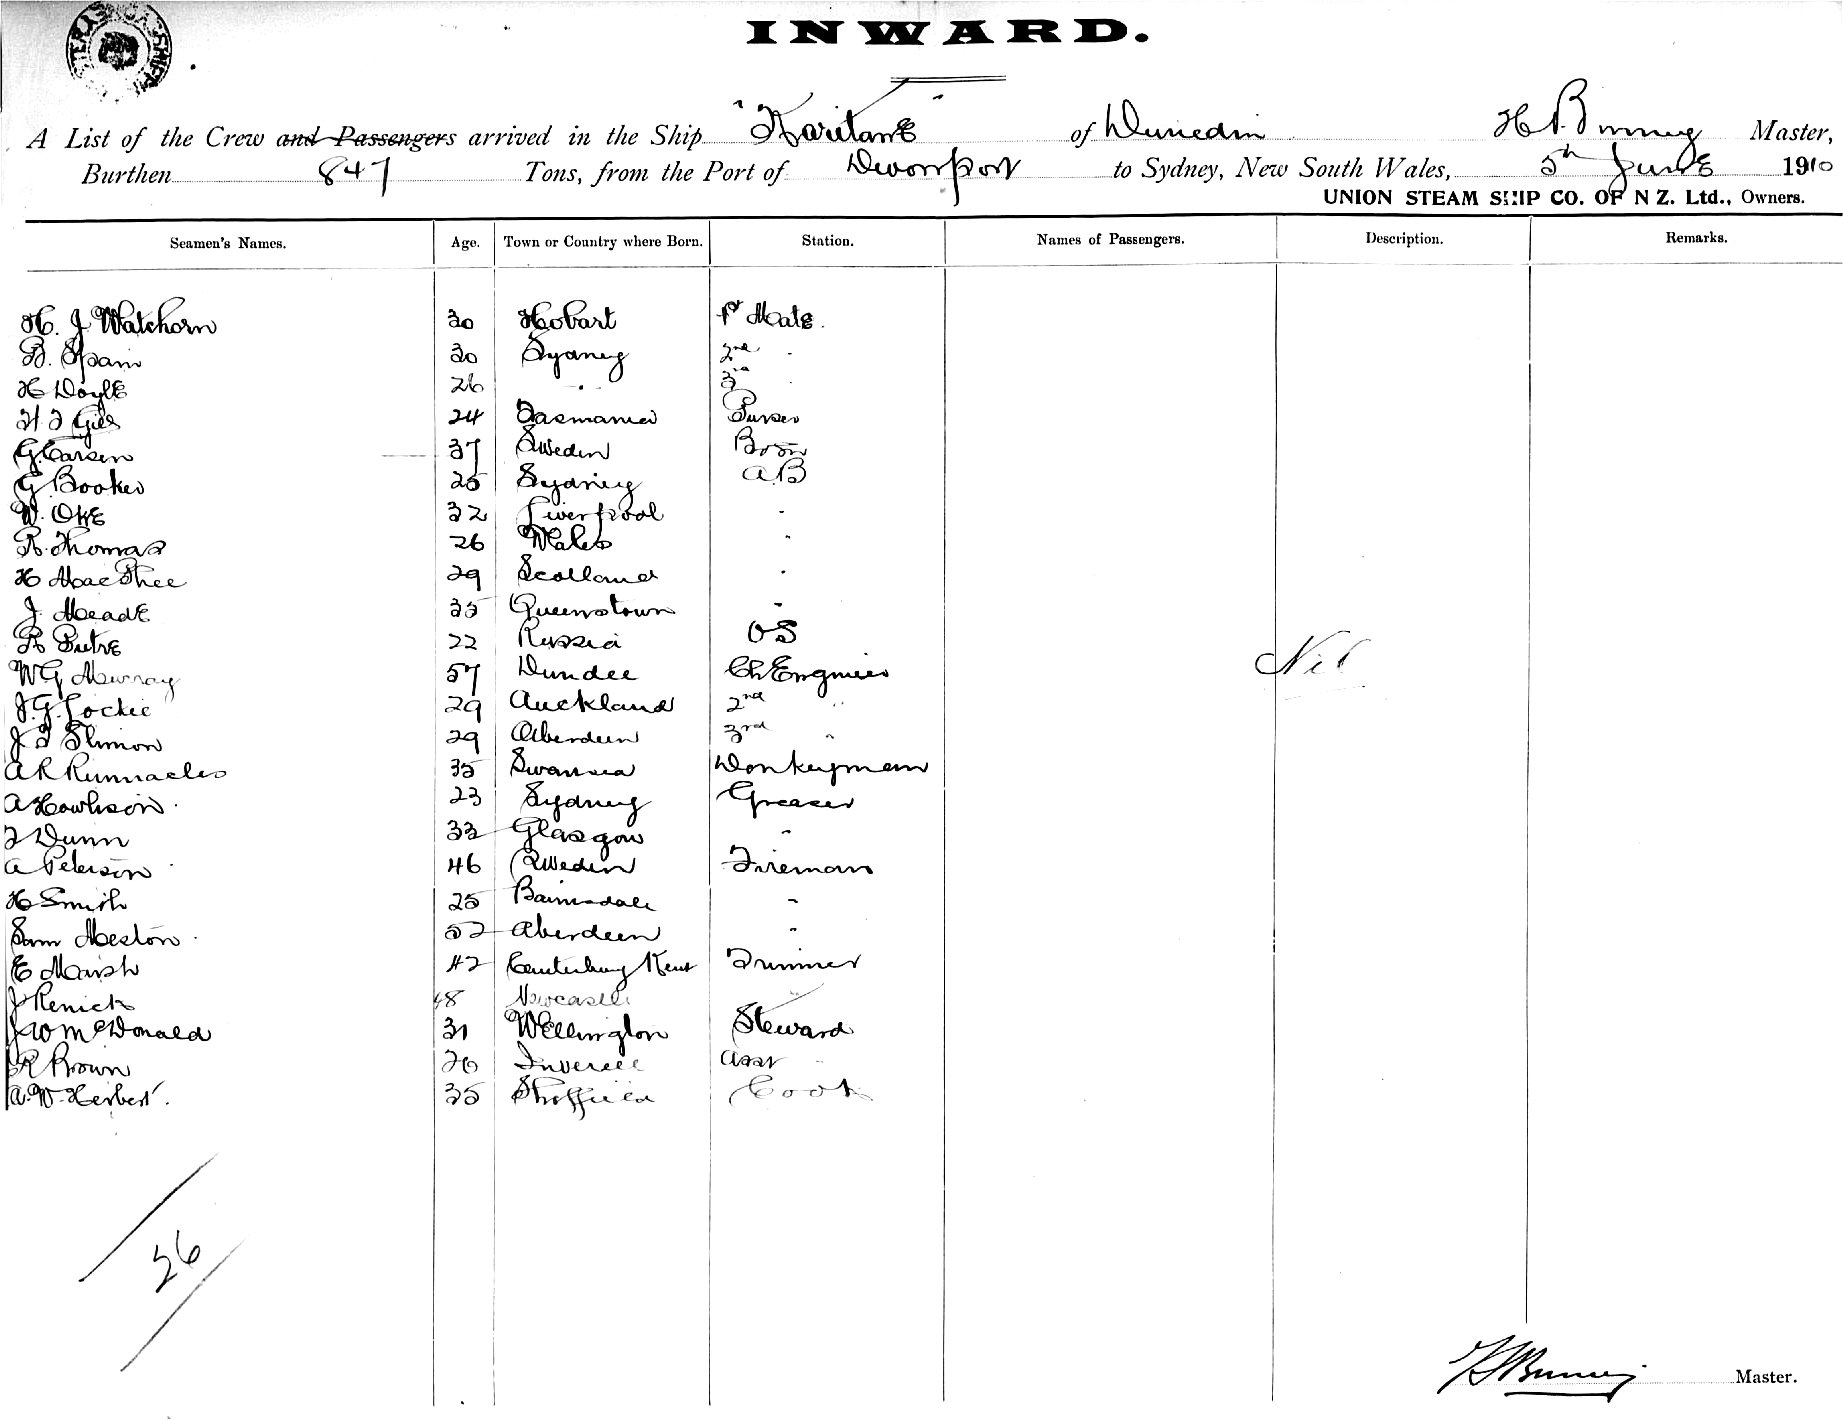 INWARD.
A List of the Crew and Passengers arrived in the Ship "Karitane" of Dunedin H P. Binney Master,
Burthen 847 Tons, from the Port of Devonport to Sydney, New South Wales, 5th June 1910
UNION STEAM SHIP CO. OF N Z. Ltd., Owners.
Seamen's Names. Age. Town or Country where Born. Station. Names of Passengers. Description. Remarks.
H. J Watchorn 30 Hobart 1st Mate.
B. Spain 30 Sydney 2nd "
H Doyle 26 " 3rd "
24 Tasmania Purser
G. Carsen 37 Sweden Bosn
G Booker 25 Sydney A.B
W. Oke 32 Liverpool "
R. Thomas 26 Wales "
H MacPhee 29 Scotland "
J. Meade 35 Queenstown "
R Petre 22 Russia OS
W G Murray 57 Dundee Ch Engineer
J. G. Lockie 29 Auckland 2nd "
J Slimon 29 Aberdeen 3rd "
A R Runnacles 35 Swansea Donkeyman
A Howhison. 23 Sydney Greaser
Dunn 33 Glasgow "
A Peterson 46 Sweden Fireman
H Smith 25 Bairnsdale "
Sam Meston. 52 Aberdeen "
E Marsh 42 Canterbury Kent Trimmer
J Renick 48 Newcastle "
J W McDonald 31 Wellington Steward
R Brown 26 Asst "
A. W. Herbert. 35 Sheffield Cook
Nil
26
Master.